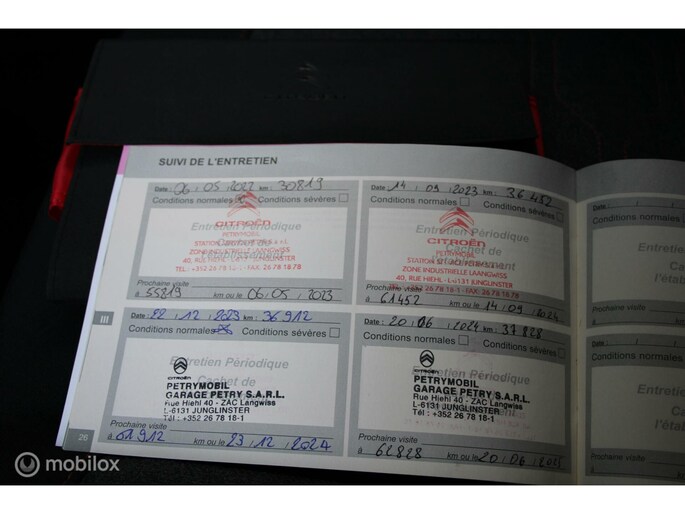 SUIVI DE L'ENTRETIEN
Date : 06 . 05 . 2022 km : 30819
Conditions normales Conditions sévères
Entretien Périodique
CITROËN
Cachet de
PETRYMOBIL
ZONE INDUSTRIELLE LAANGWISS
TEL.: +352 26 78 18 1 - FAX: 26 78 18 78
Prochaine visite
à 55819 km ou le 06 . 05 . 2023
Date : 14 . 09 . 2023 km : 36452
Conditions normales Conditions sévères
Entretien Périodique
CITROËN
PETRYMOBIL
ZONE INDUSTRIELLE LAANGWISS
40, RUE HIEHL - L-6131 JUNGLINSTER
TEL.: +352 26 78 18-1 - FAX: 26 78 18 78
Prochaine visite
à 61452 km ou le 14 . 09 . 2024
III
Date : 22 . 12 . 2023 km : 36912
Conditions normales Conditions sévères
Entretien Périodique
Cachet de
CITROËN
PETRYMOBIL
GARAGE PETRY S.A.R.L.
Rue Hiehl 40 - ZAC Langwiss
L-6131 JUNGLINSTER
Tél : +352 26 78 18-1
Prochaine visite
à 61912 km ou le 23 . 12 . 2024
Date : 20 . 06 . 2024 km : 37828
Conditions normales Conditions sévères
Entretien Périodique
CITROËN
PETRYMOBIL
GARAGE PETRY S.A.R.L.
Rue Hiehl 40 - ZAC Langwiss
L-6131 JUNGLINSTER
Tél : +352 26 78 18-1
Prochaine visite
à 62828 km ou le 20 . 06 . 2025
26
Date :
Conditions
Entre
C
l'étab
Prochaine visite
à
Date :
Conditions
Entre
C
l'éta
Prochaine visite
à
mobilox